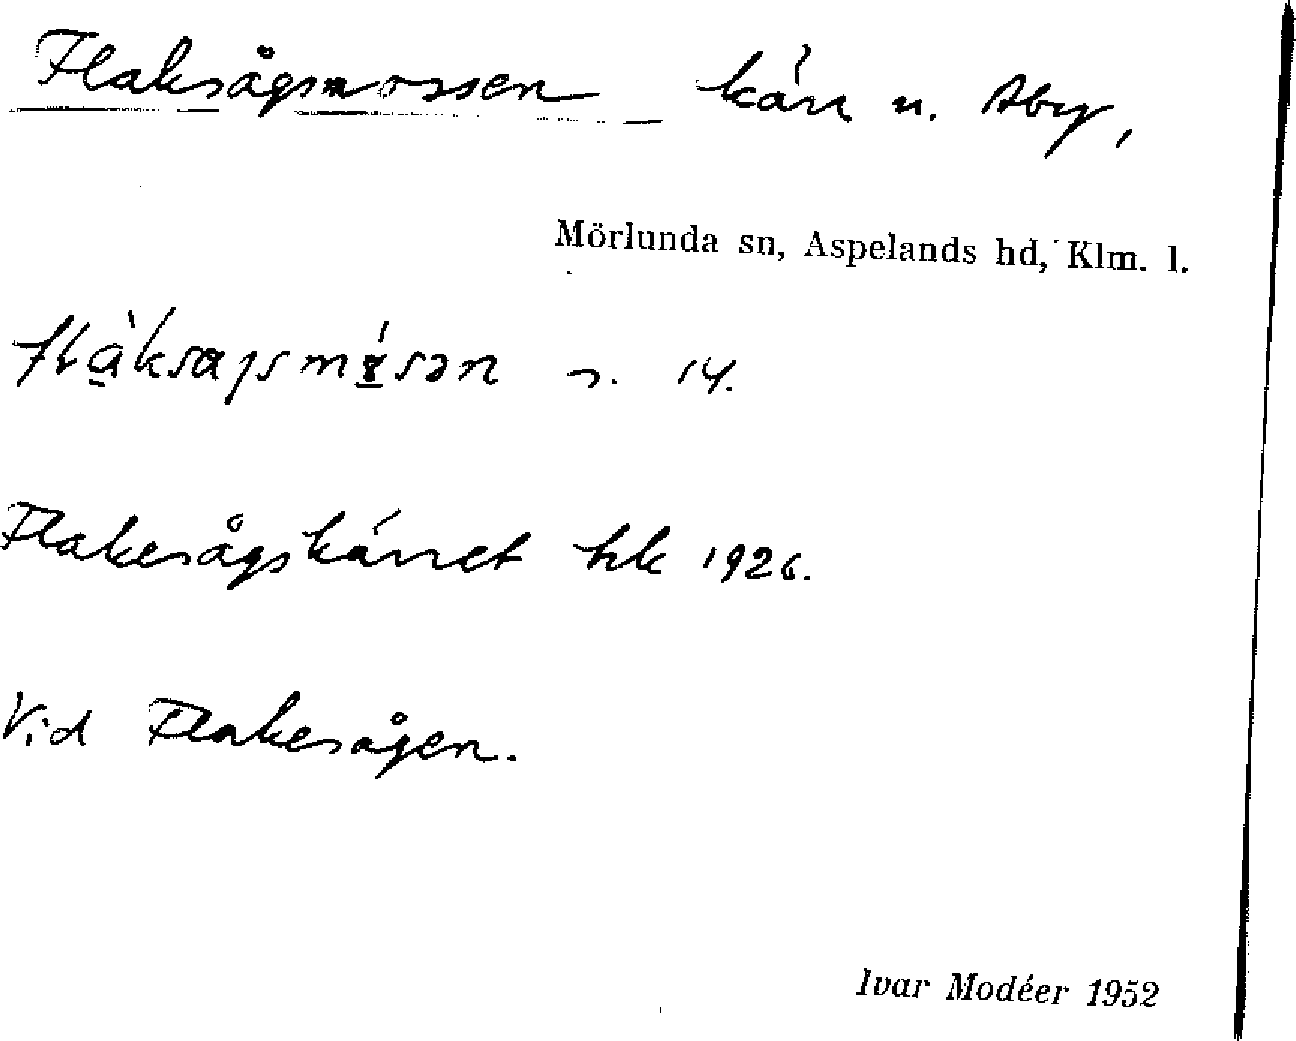 Flaksågsmossen kärr u. Åby,
Mörlunda sn, Aspelands hd, Klm. l.
s. 14.
Flakesågskärret hk 1926.
Vid Flakesågen.
Ivar Modéer 1952